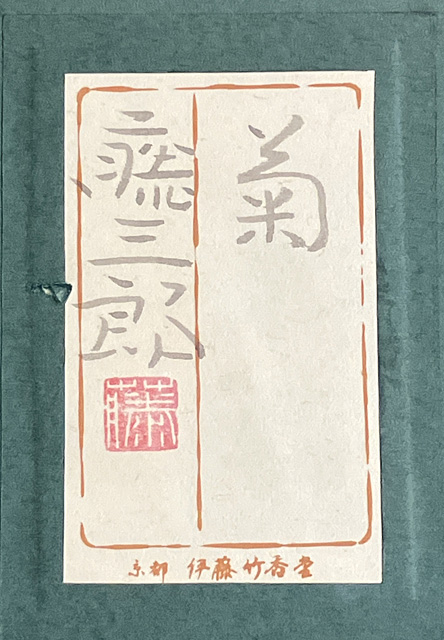 菊
三郎
京都 伊藤竹香堂